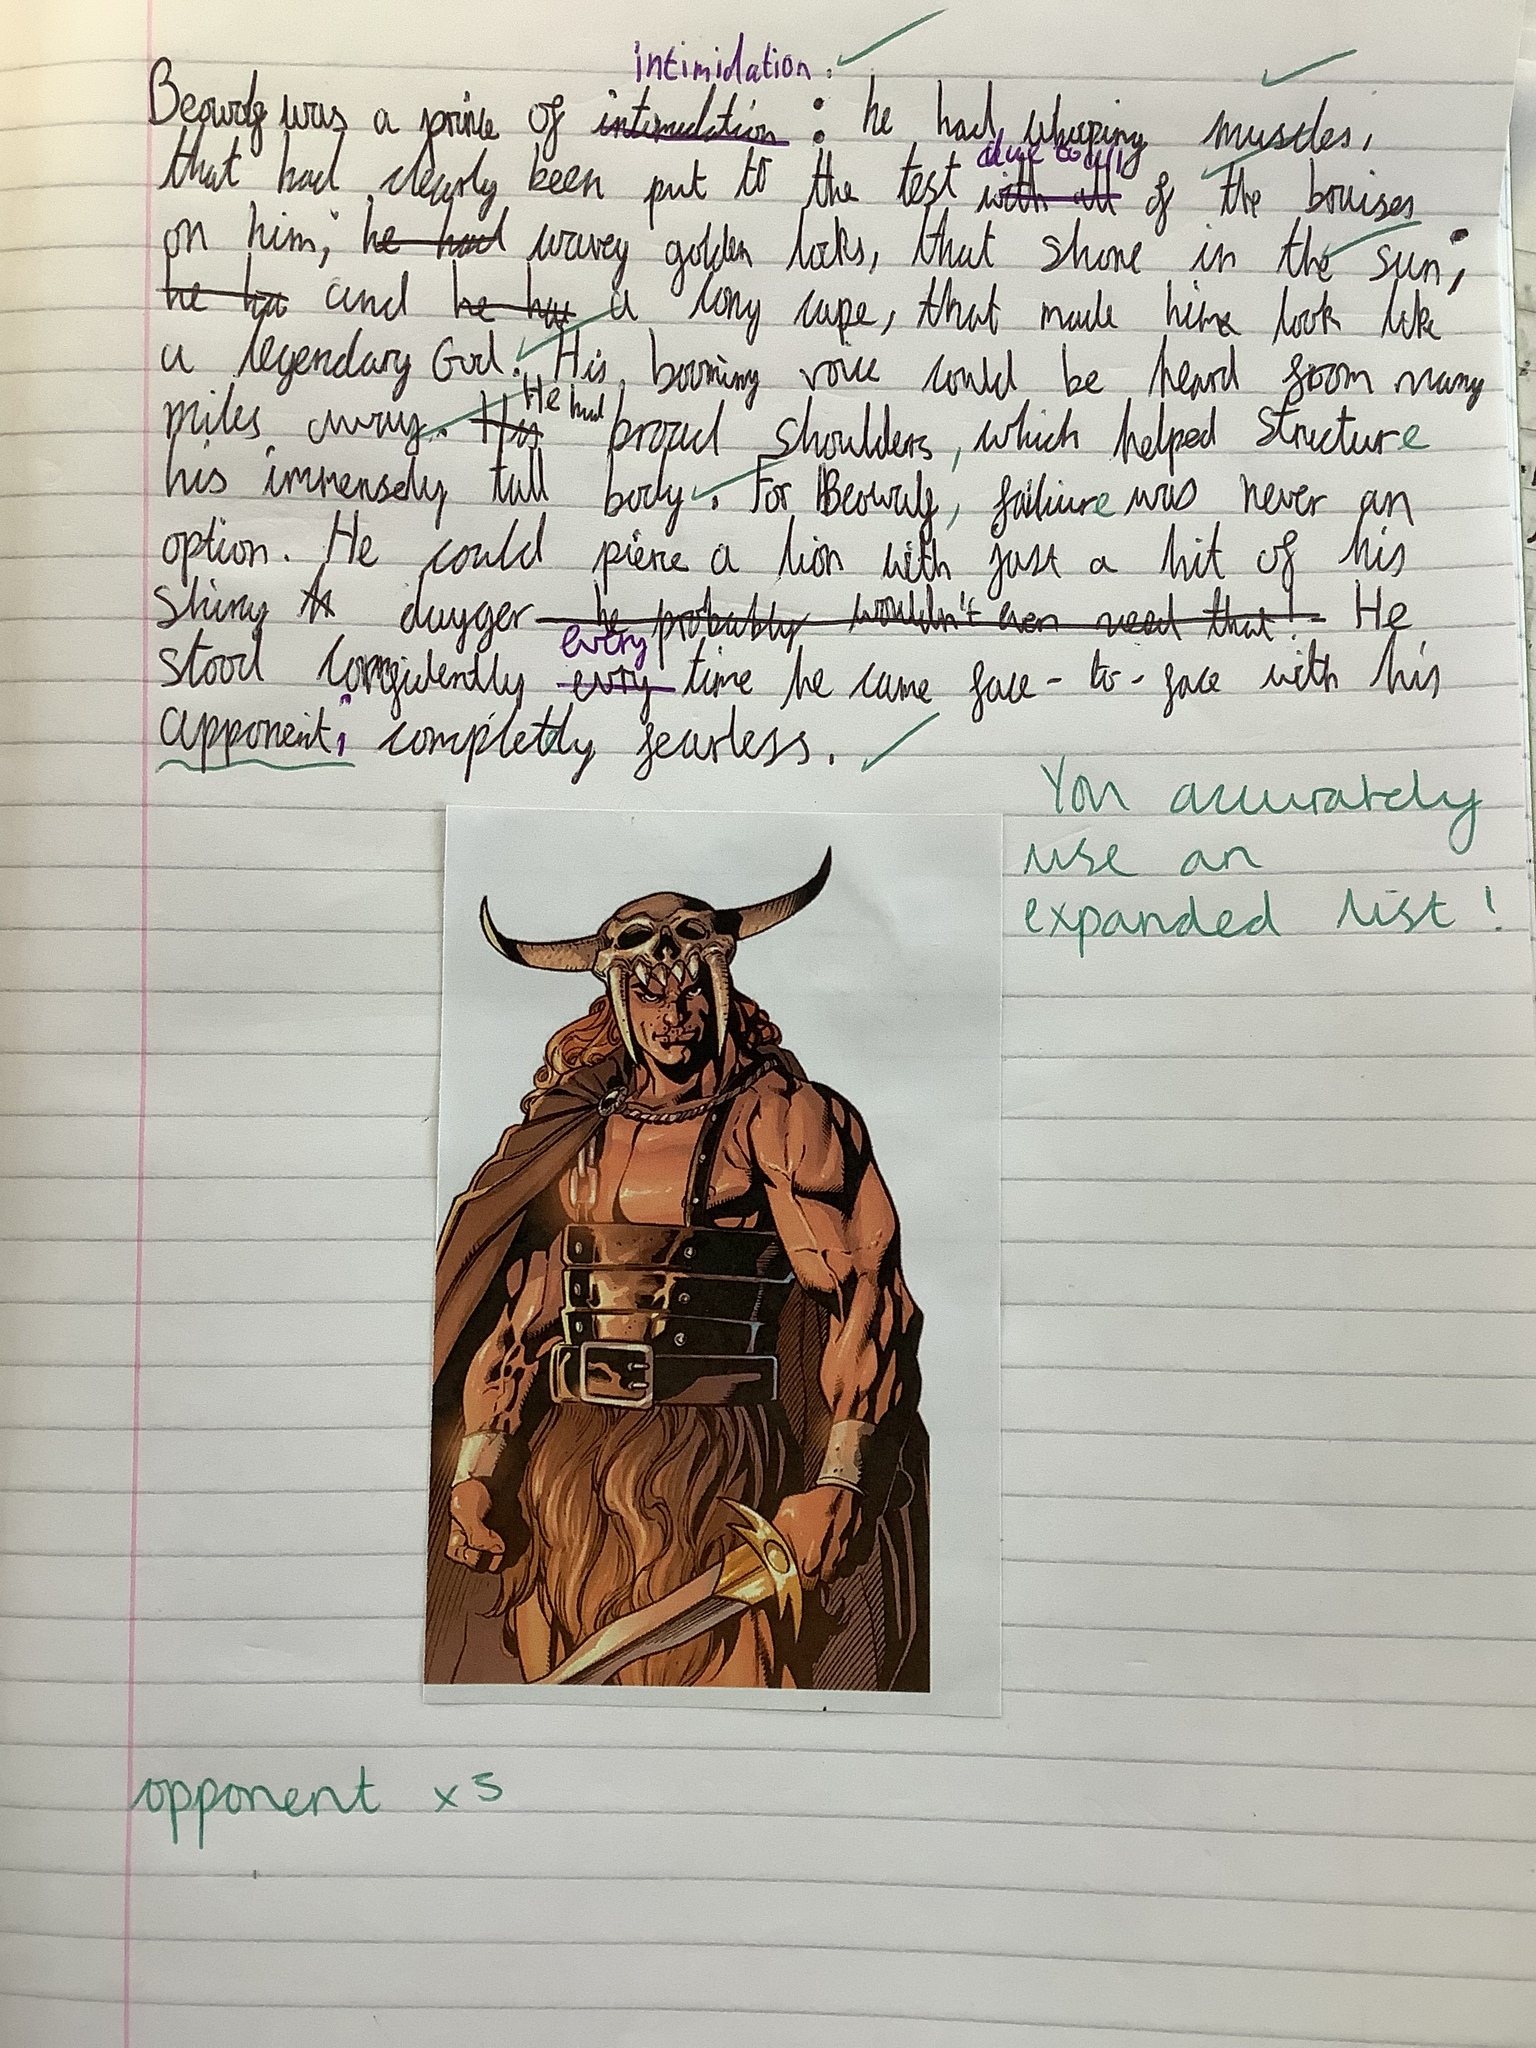 intimidation.
Beowulf was a prince of intimidation : he had whooping muscles,
due to all
that had clearly been put to the test with all of the bruises
on him; he had wavey golden locks, that shone in the sun;
he ha and he ha a long cape, that made him look like
a legendary God. His booming voice could be heard from many
He had
miles away. His broad shoulders, which helped structure
his immensely tall body. For Beowulf, failiure was never an
option. He could pierce a lion with just a hit of his
shiny dagger - he probably wouldn't even need that! - He
every
stood confidently evry time he came face-to-face with his
apponent; completly fearless.
You accurately
use an
expanded list!
opponent x3